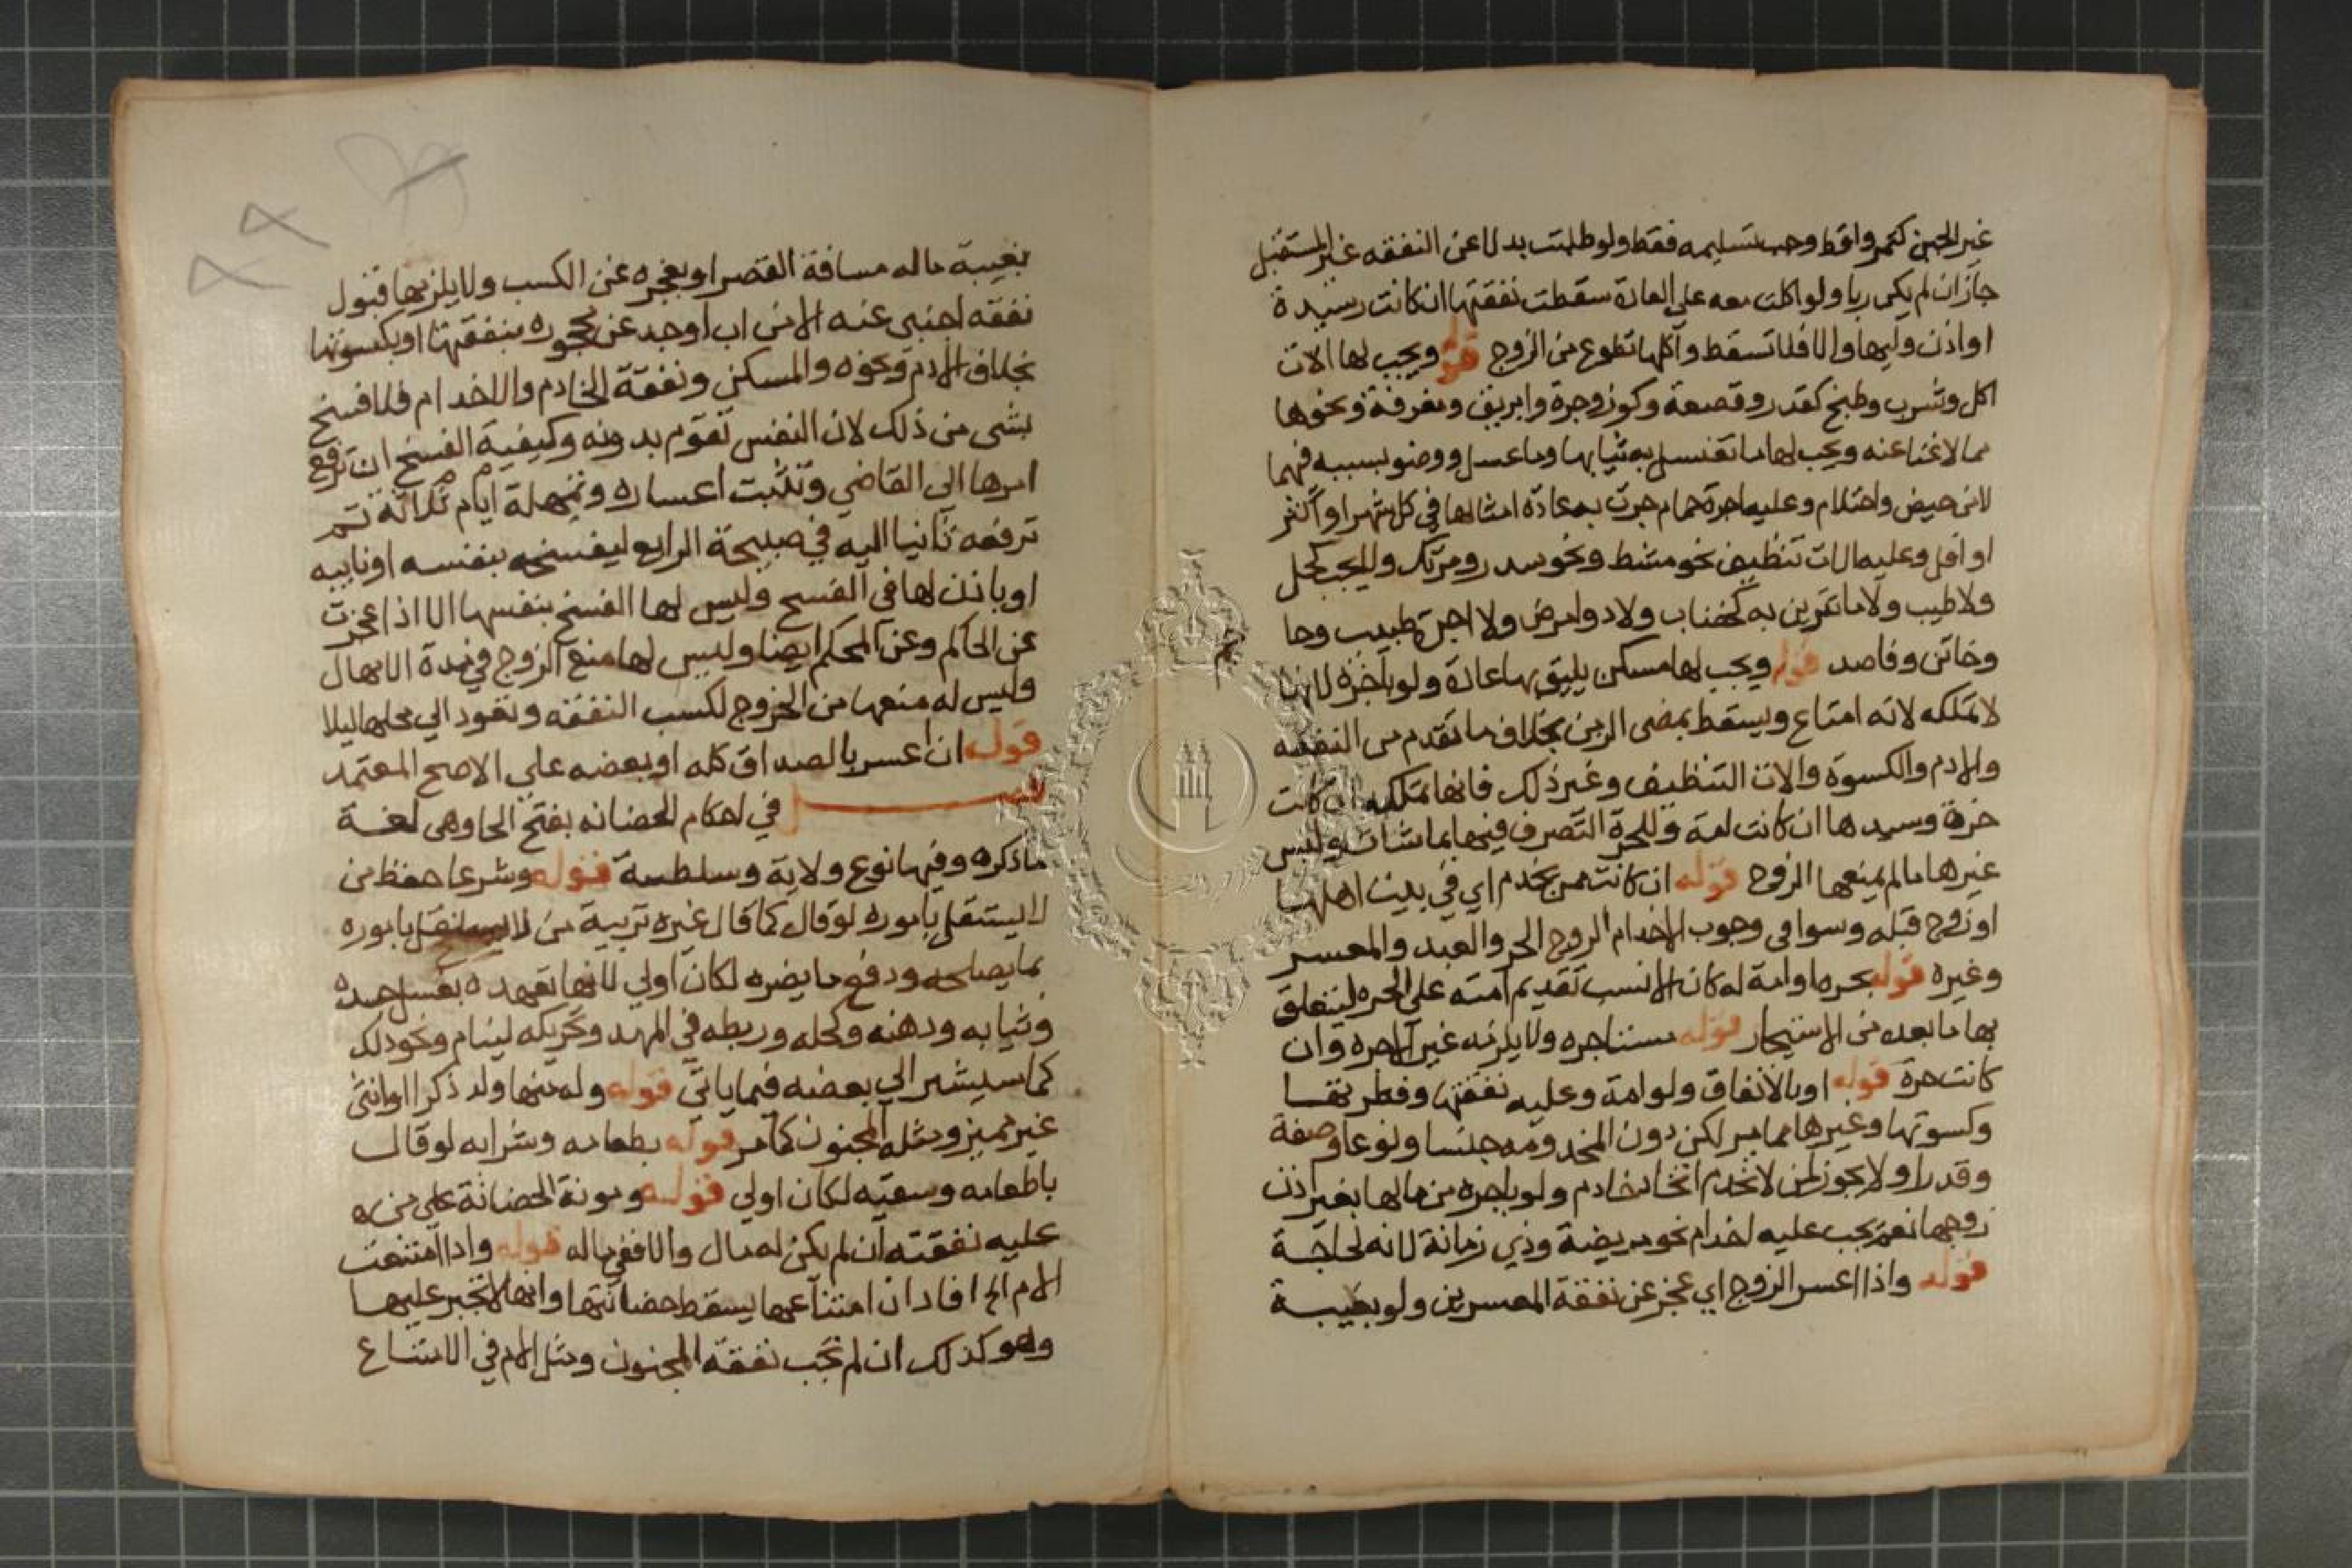 غير الجبن كتمر واقط وجب تسليمه فقط ولو طلبت بدلا عن النفقه غير المستقبل
جاز ان لم يكن ربا ولو اكلت معه علي العادة سقطت نفقتها ان كانت رشيدة
او اذن وليها والا فلا تسقط واكلها تطوع من الزوج قوله ويجب لها الات
اكل وشرب وطبخ كقدر وقصعة وكوز وجرة وابريق ومغرفة ونحوها
مما لا غنا عنه ويجب لها ما تغتسل به ثيابها وما غسل ووضو بسببه فيهما
لا من حيض واحتلام وعليه اجرة حمام جرت به عادة امثالها في كل شهر او اكثر
او اقل وعليه الات تنظيف نحو مشط ونحو سدر ومرتك ولا يجب كحل
ولا طيب ولا ما تتزين به كخضاب ولا دوا مرض ولا اجرة طبيب وحا
وخاتن وفاصد قوله ويجب لها مسكن يليق بها عادة ولو باجرة لانها
لا تملكه لانه امتاع ويسقط بمضي الزمن بخلاف ما تقدم من النفقه
والادم والكسوة والات التنظيف وغير ذلك فانها تملكه ان كانت
حرة وسيدها ان كانت امة وللحرة التصرف فيها بما شات وليس
غيرها ما لم يمنعها الزوج قوله ان كانت ممن يخدم اي في بيت اهلها
او زوج قبله وسوا في وجوب الاخدام الزوج الحر والعبد والمعسر
وغيره قوله بحره او امة له كان الانسب تقديم امته علي الحره ليتعلق
بها ما بعده من الاستيجار قوله مستاجره ولا يلزمه غير الاجره وان
كانت حرة قوله او بالانفاق ولو امة وعليه نفقتها وفطرتها
وكسوتها وغيرها مما مر لكن دون المخدومه جنسا ونوعا وصفة
وقدرا ولا يجوز لمن لا تخدم اتخاذ خادم ولو باجره من مالها بغير اذن
زوجها نعم يجب عليه اخدام نحو مريضة وذي زمانة لانه لحاجة
قوله واذا اعسر الزوج اي عجز عن نفقة المعسرين ولو بغيبة
بغيبة ماله مسافة القصر او بعجزه عن الكسب ولا يلزمها قبول
نفقه اجنبي عنه الا من اب او جد عن محجوره بنفقتها او بكسوتها
بخلاف الادم ونحوه والمسكن ونفقة الخادم والاخدام فلا فسخ
بشي من ذلك لان النفس تقوم بدونه وكيفية الفسخ ان ترفع
امرها الي القاضي وتثبت اعساره ويمهله ايام ثلاثة ثم
ترفعه ثانيا اليه في صبيحة الرابع ليفسخه بنفسه او نايبه
او باذن لها في الفسخ وليس لها الفسخ بنفسها الا اذا عجزت
عن الحاكم وعن المحكم ايضا وليس لها منع الزوج في مدة الامهال
وليس له منعها من الخروج لكسب النفقه وتعود الي محلها ليلا
قوله ان اعسر بالصداق كله او بعضه علي الاصح المعتمد
فصل في احكام الحضانه بفتح الحا وهي لغة
ما ذكره وفيها نوع ولاية وسلطنة قوله وشرعا حفظ من
لا يستقل باموره لو قال كما قال غيره تربية من لا يستقل باموره
بما يصلحه ودفع ما يضره لكان اولي لانها تعهده بغسل جسده
وثيابه ودهنه وكحله وربطه في المهد وتحريكه لينام ونحو ذلك
كما سيشير الي بعضه فيما ياتي قوله وله منها ولد ذكرا او انثي
غير مميز ومثله المجنون كما مر قوله بطعامه وشرابه لو قال
باطعامه وسقيه لكان اولي قوله ومونة الحضانة علي من
عليه نفقته ان لم يكن له مال والا ففي ماله قوله واذا امتنعت
الام الخ افاد ان امتناعها يسقط حضانتها وانها لا تجبر عليها
وهو كذلك ان لم تجب نفقه المجنون ومثل الام في الامتناع